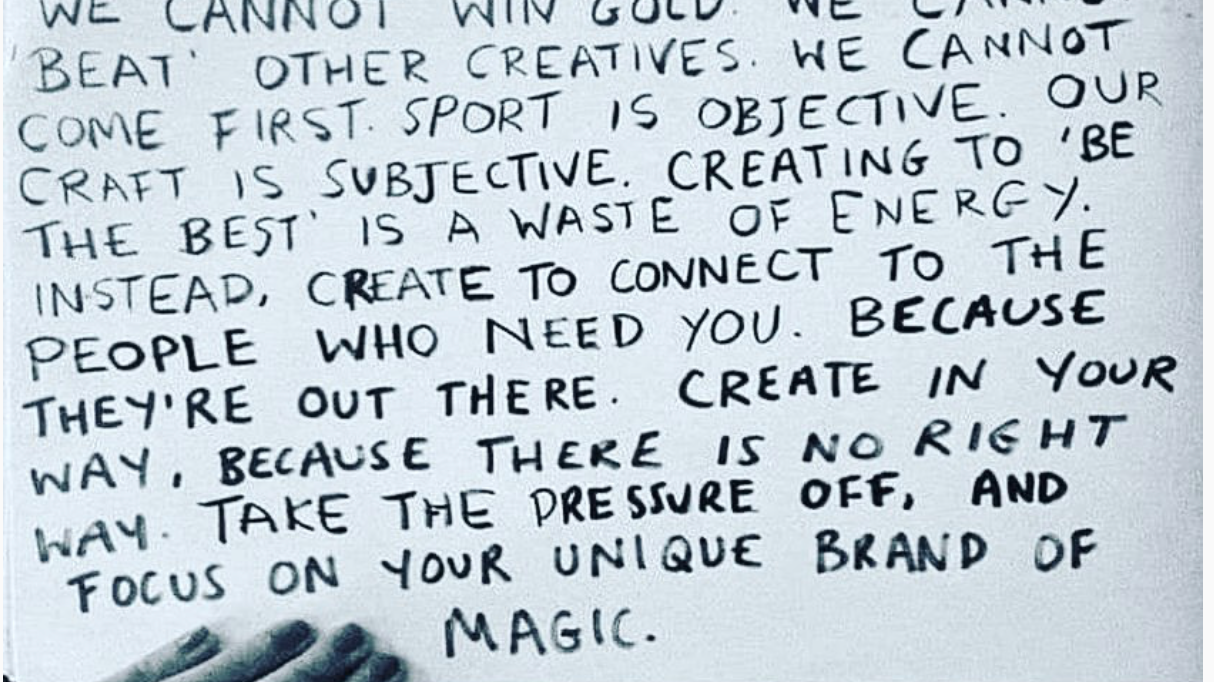 WE CANNOT WIN GOLD. WE
'BEAT' OTHER CREATIVES. WE CANNOT
COME FIRST. SPORT IS OBJECTIVE. OUR
CRAFT IS SUBJECTIVE. CREATING TO 'BE
THE BEST' IS A WASTE OF ENERGY.
INSTEAD, CREATE TO CONNECT TO THE
PEOPLE WHO NEED YOU. BECAUSE
THEY'RE OUT THERE. CREATE IN YOUR
WAY, BECAUSE THERE IS NO RIGHT
WAY. TAKE THE PRESSURE OFF, AND
FOCUS ON YOUR UNIQUE BRAND OF
MAGIC.